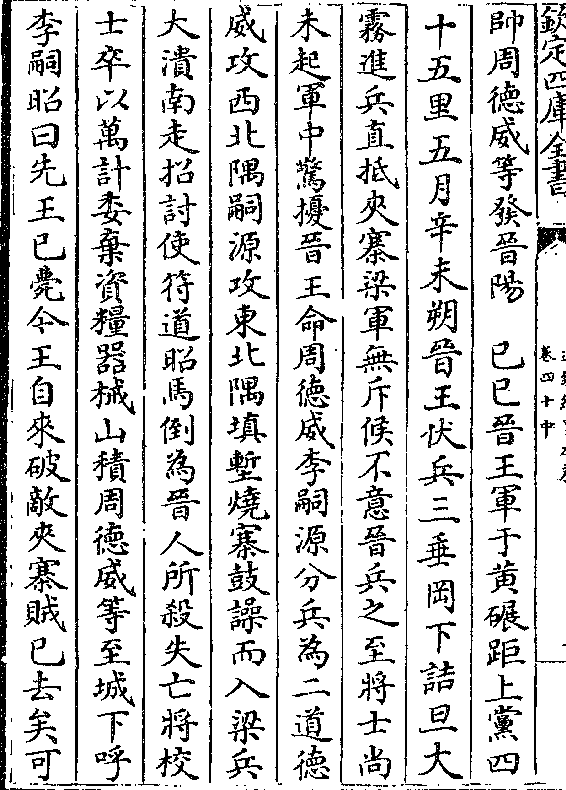 欽定四庫全書
卷四十中
帥周德威等發晉陽　己巳晉王軍于黃碾距上黨四
十五里五月辛未朔晉王伏兵三垂岡下詰旦大
霧進兵直抵夾寨梁軍無斥候不意晉兵之至將士尚
未起軍中驚擾晉王命周德威李嗣源分兵為二道德
威攻西北隅嗣源攻東北隅填塹燒寨鼓譟而入梁兵
大潰南走招討使符道昭馬倒為晉人所殺失亡將校
士卒以萬計委棄資糧器械山積周德威等至城下呼
李嗣昭曰先王已薨今王自來破敵夾寨賊已去矣可